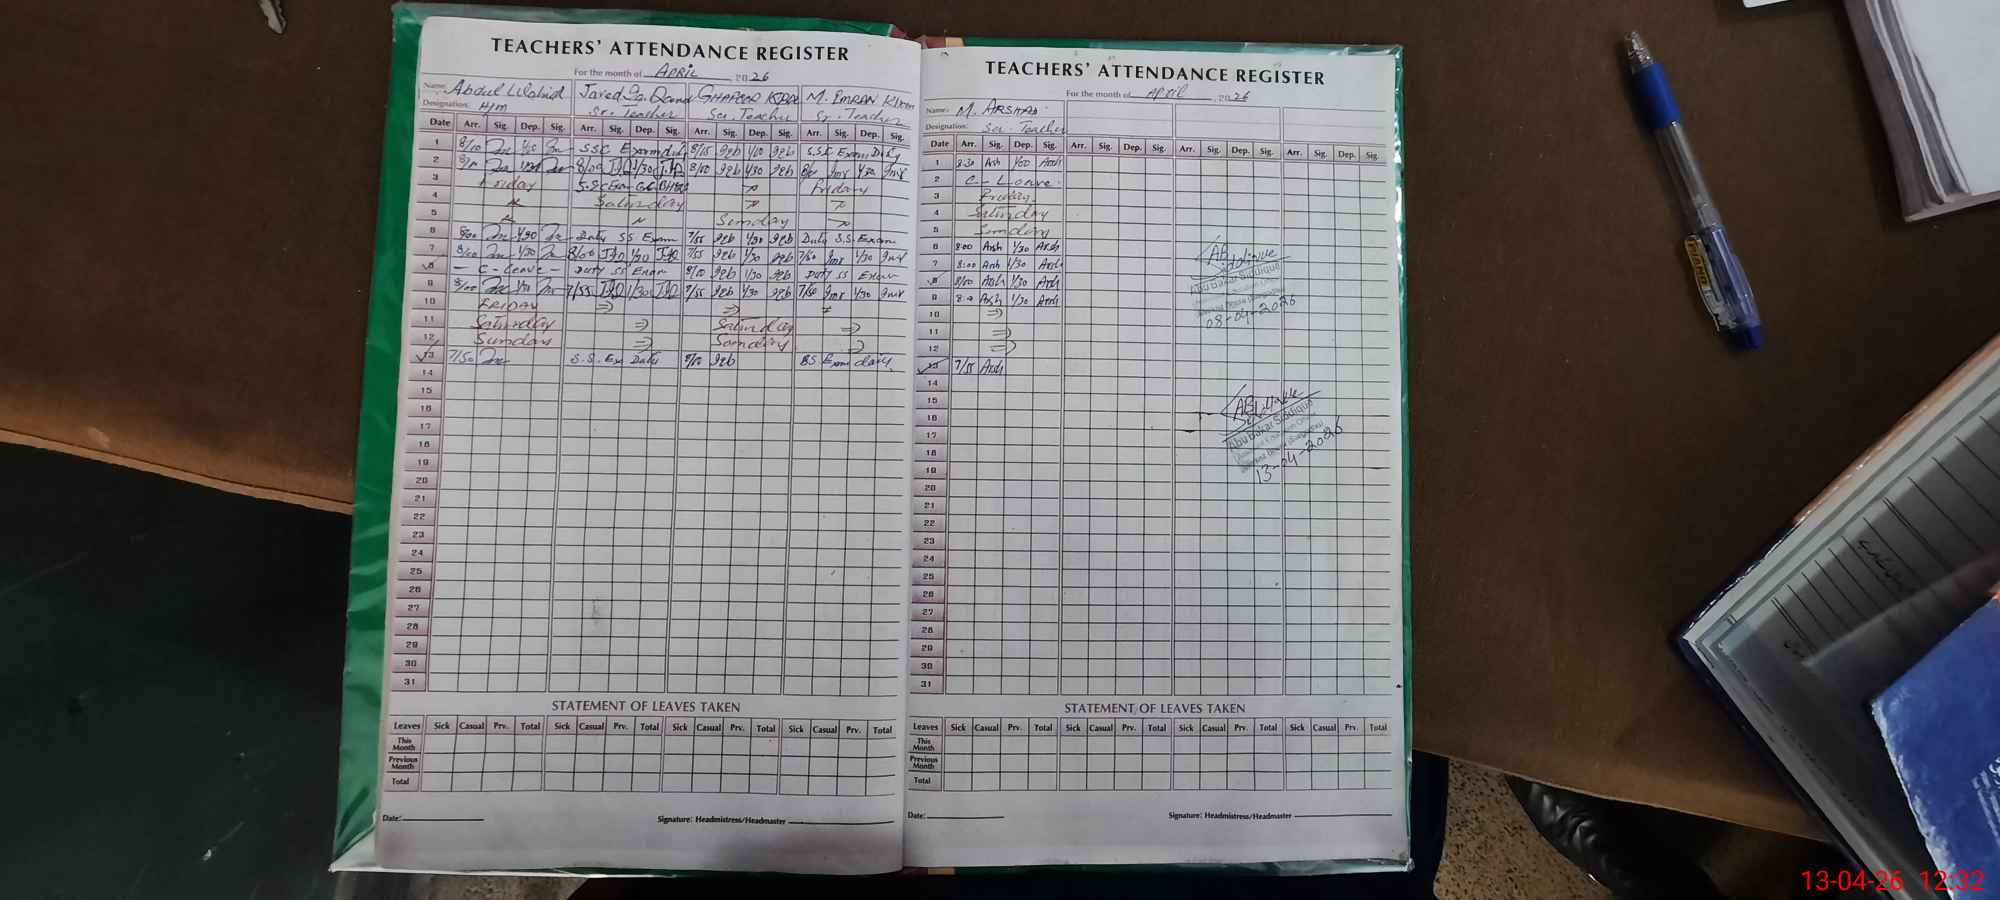 TEACHERS' ATTENDANCE REGISTER
For the month of APRIL 2026
Name: Abdul Wahid Javed GHAFOOR M. IMRAN
Designation: H/M Sr. Teacher Sci. Teacher Sr. Teacher
Date Arr. Sig. Dep. Sig. Arr. Sig. Dep. Sig. Arr. Sig. Dep. Sig. Arr. Sig. Dep. Sig.
1 8/00 SSC Exam duty 8/15 1/00 S.S.C Exam Duty
2 8/00 1/30 8/00 1/30 1/30
3 Friday Friday
4 Saturday
5 Sunday
6 8/00 1/30 Duty SS Exam 7/55 1/30 Duty S.S. Exam
7 8/00 1/30 8/00 1/30 7/55 1/30 7/50 1/30
8 - C - Leave - Duty SS Exam 8/00 1/30 Duty SS Exam
9 8/00 1/30 7/55 1/30 7/55 1/30 7/50 1/30
10 FRIDAY
11 Saturday Saturday
12 Sunday Sunday
13 7/50 S.S. Ex Duty 8/00 SS Exam duty
14
15
16
17
18
19
20
21
22
23
24
25
26
27
28
29
30
31
STATEMENT OF LEAVES TAKEN
Leaves Sick Casual Prv. Total Sick Casual Prv. Total Sick Casual Prv. Total Sick Casual Prv. Total
This Month
Previous Month
Total
Date: Signature: Headmistress/Headmaster
TEACHERS' ATTENDANCE REGISTER
For the month of April 2026
Name: M. ARSHAD
Designation: Sci. Teacher
Date Arr. Sig. Dep. Sig. Arr. Sig. Dep. Sig. Arr. Sig. Dep. Sig. Arr. Sig. Dep. Sig.
1 8:30 Arsh 1/00 Arsh
2 C - Leave
3 Friday
4 Saturday
5 Sunday
6 8:00 Arsh 1/30 Arsh
7 8:00 Arsh 1/30 Arsh
8 8/00 Arsh 1/30 Arsh
9 8:0 Arsh 1/30 Arsh
10
11
12
13 7/55 Arsh
14
15
16
17
18
19
20
21
22
23
24
25
26
27
28
29
30
31
Abu Bakar Siddique
08-04-2026
Abu Bakar Siddique
13-04-2026
STATEMENT OF LEAVES TAKEN
Leaves Sick Casual Prv. Total Sick Casual Prv. Total Sick Casual Prv. Total Sick Casual Prv. Total
This Month
Previous Month
Total
Date: Signature: Headmistress/Headmaster
PIANO
13-04-26 12:32